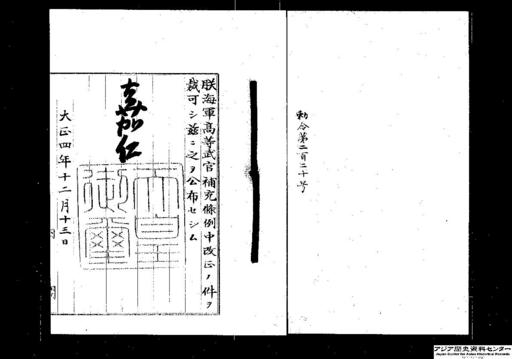 勅令第二百二十号
朕海軍高等武官補充條例中改正ノ件ヲ
裁可シ茲ニ之ヲ公布セシム
嘉仁
天皇御璽
大正四年十二月十三日
アジア歴史資料センター
Japan Center for Asian Historical Records